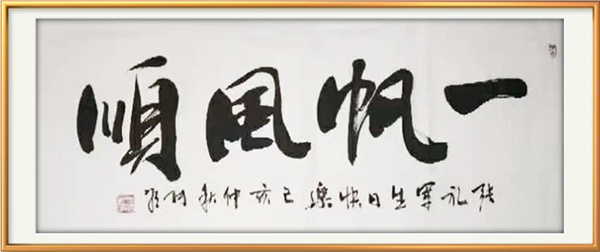 一帆風順
张礼军生日快樂己亥仲秋